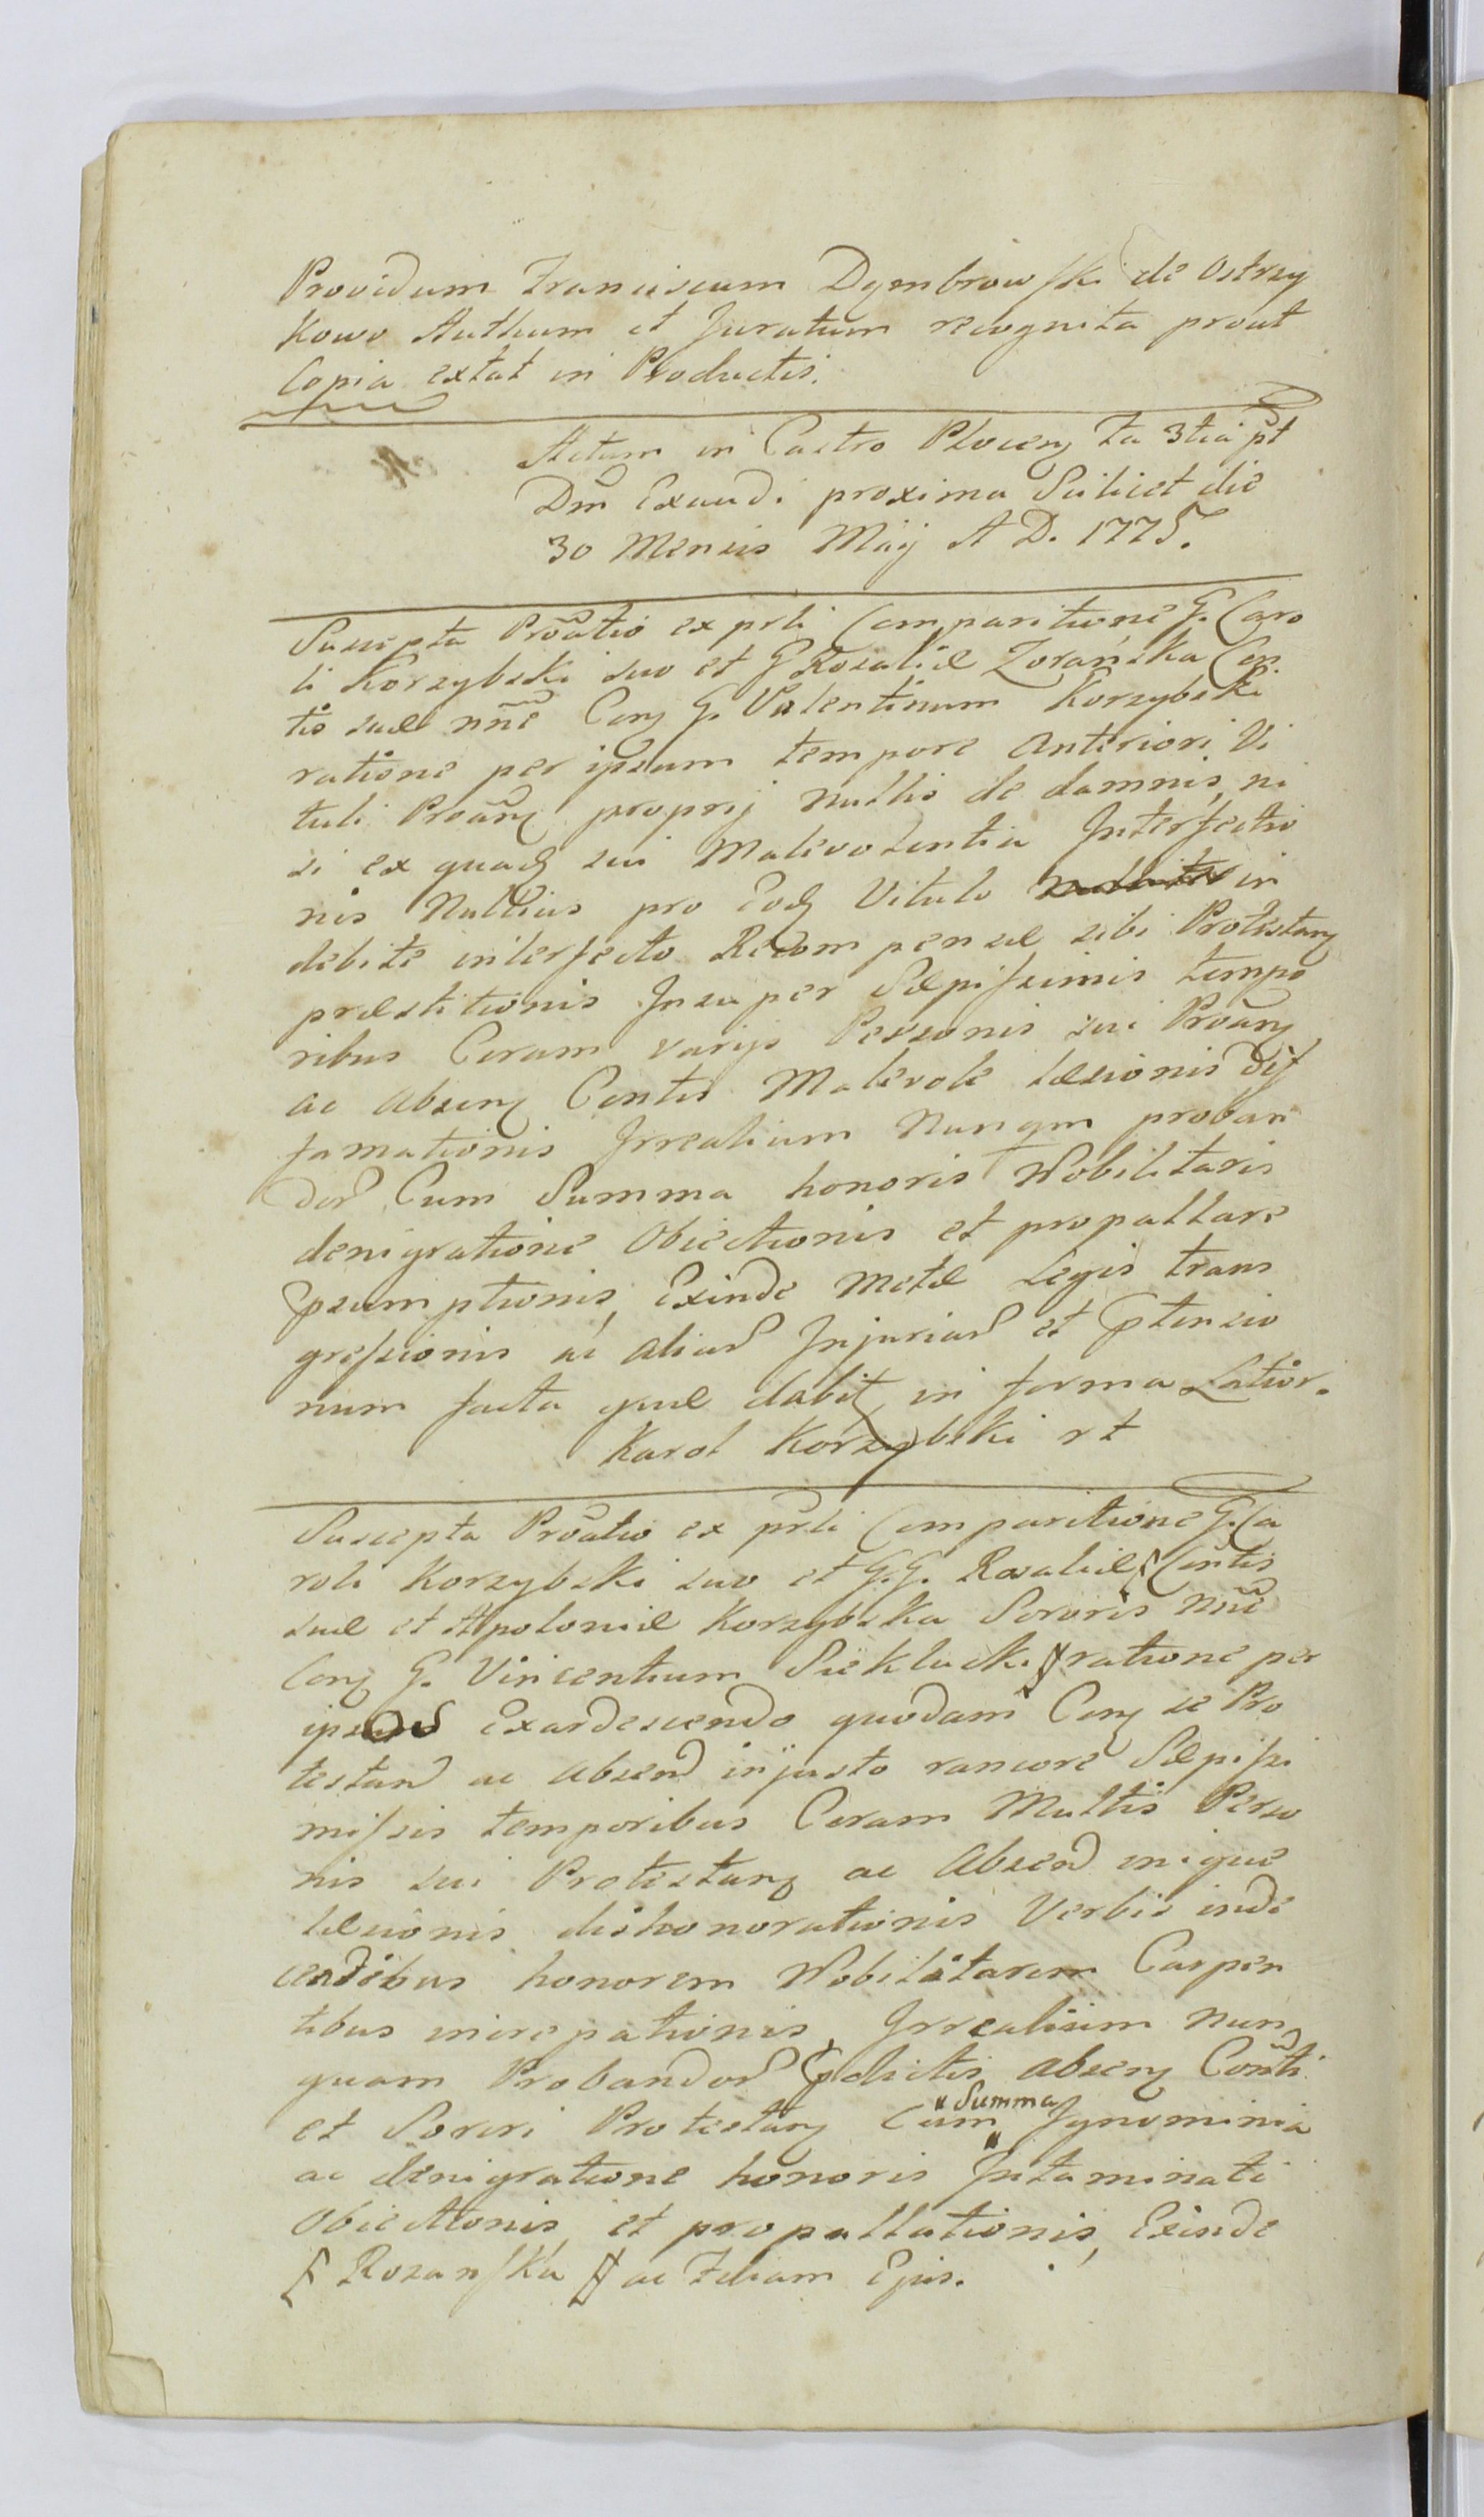 Providum Franciscum Dymbrowski de Ostrzy
kowo Authum et Juratum recognita prout
Copia extat in Productis.
Actum in Castro Plocen fa 3tia pt
Dm̃ Exaudi proxima Scilicet die
30 Mensis Maij A D. 1775.
Suscepta Proãtio ex prsli Comparitione G. Caro
li Korzybski suo et G Rozaliæ Zorańska Con
tis suæ nn̄e Con G. Valentinum Korzybski
ratione per ipsum tempore anteriori Vi
tuli Proãn proprij nullis de damnis, ni
si ex quad sui Malevolentia Interfectio
nis Nullius pro Eod Vitulo in
debite interfecto Recompensæ sibi Protestan
præstitionis Insuper Sæpissimis tempo
ribus Coram varijs Personis sui Proãn
ac absen Contis Malevole læsionis dif
famationis Irrealium Nunqm proban
dor Cum Summa honoris Nobilitaris
denigratione Obiectionis et propallare
Psumptionis, Exinde Metæ Legis trans
gressionis ac aliar Injuriar et Ptensio
num facta quæ dabit in forma Latior.
Karol Korzybski rt
Suscepta Proãtio ex prsli Comparitione G. Ca
roli Korzybski suo et G.G. Rozaliæ ∫ Contis
suæ et Apoloniæ Korzybska Sororis nn̄e
Con G. Vincentium Siekluck. ∬ ratione per
ipsos Exardescendo quodam Con se Pro
testand ac absend injusto rancore Sæpissi
missis temporibus Coram Multis Perso
nis sui Protestan ac Absend inique
læsionis dishonorationis Verbis inde
centibus honorem Nobilitarem Carpen
tibus increpationis, Irrealium nun
quam Probandor Pdictis absen Conti
et Sorori Protestan Cum "Summa" Ignominia
ac denigratione honoris Intaminati
Obiectionis, et propallationis, Exinde
∫ Rozanska ∬ ac Filiam Ejus.